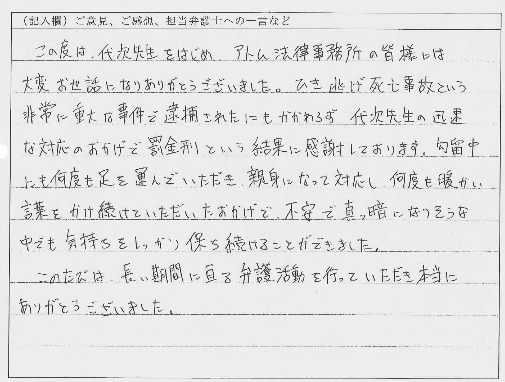 （記入欄）ご意見、ご感想、担当弁護士への一言など
この度は、代次先生をはじめ、アトム法律事務所の皆様には
大変お世話になりありがとうございました。ひき逃げ死亡事故という
非常に重大な事件で逮捕されたにもかかわらず、代次先生の迅速
な対応のおかげで罰金刑という結果に感謝しております。勾留中
にも何度も足を運んでいただき、親身になって対応し、何度も暖かい
言葉をかけ続けていただいたおかげで、不安で真っ暗になりそうな
中でも気持ちをしっかり保ち続けることができました。
このたびは、長い期間に亘る弁護活動を行っていただき本当に
ありがとうございました。